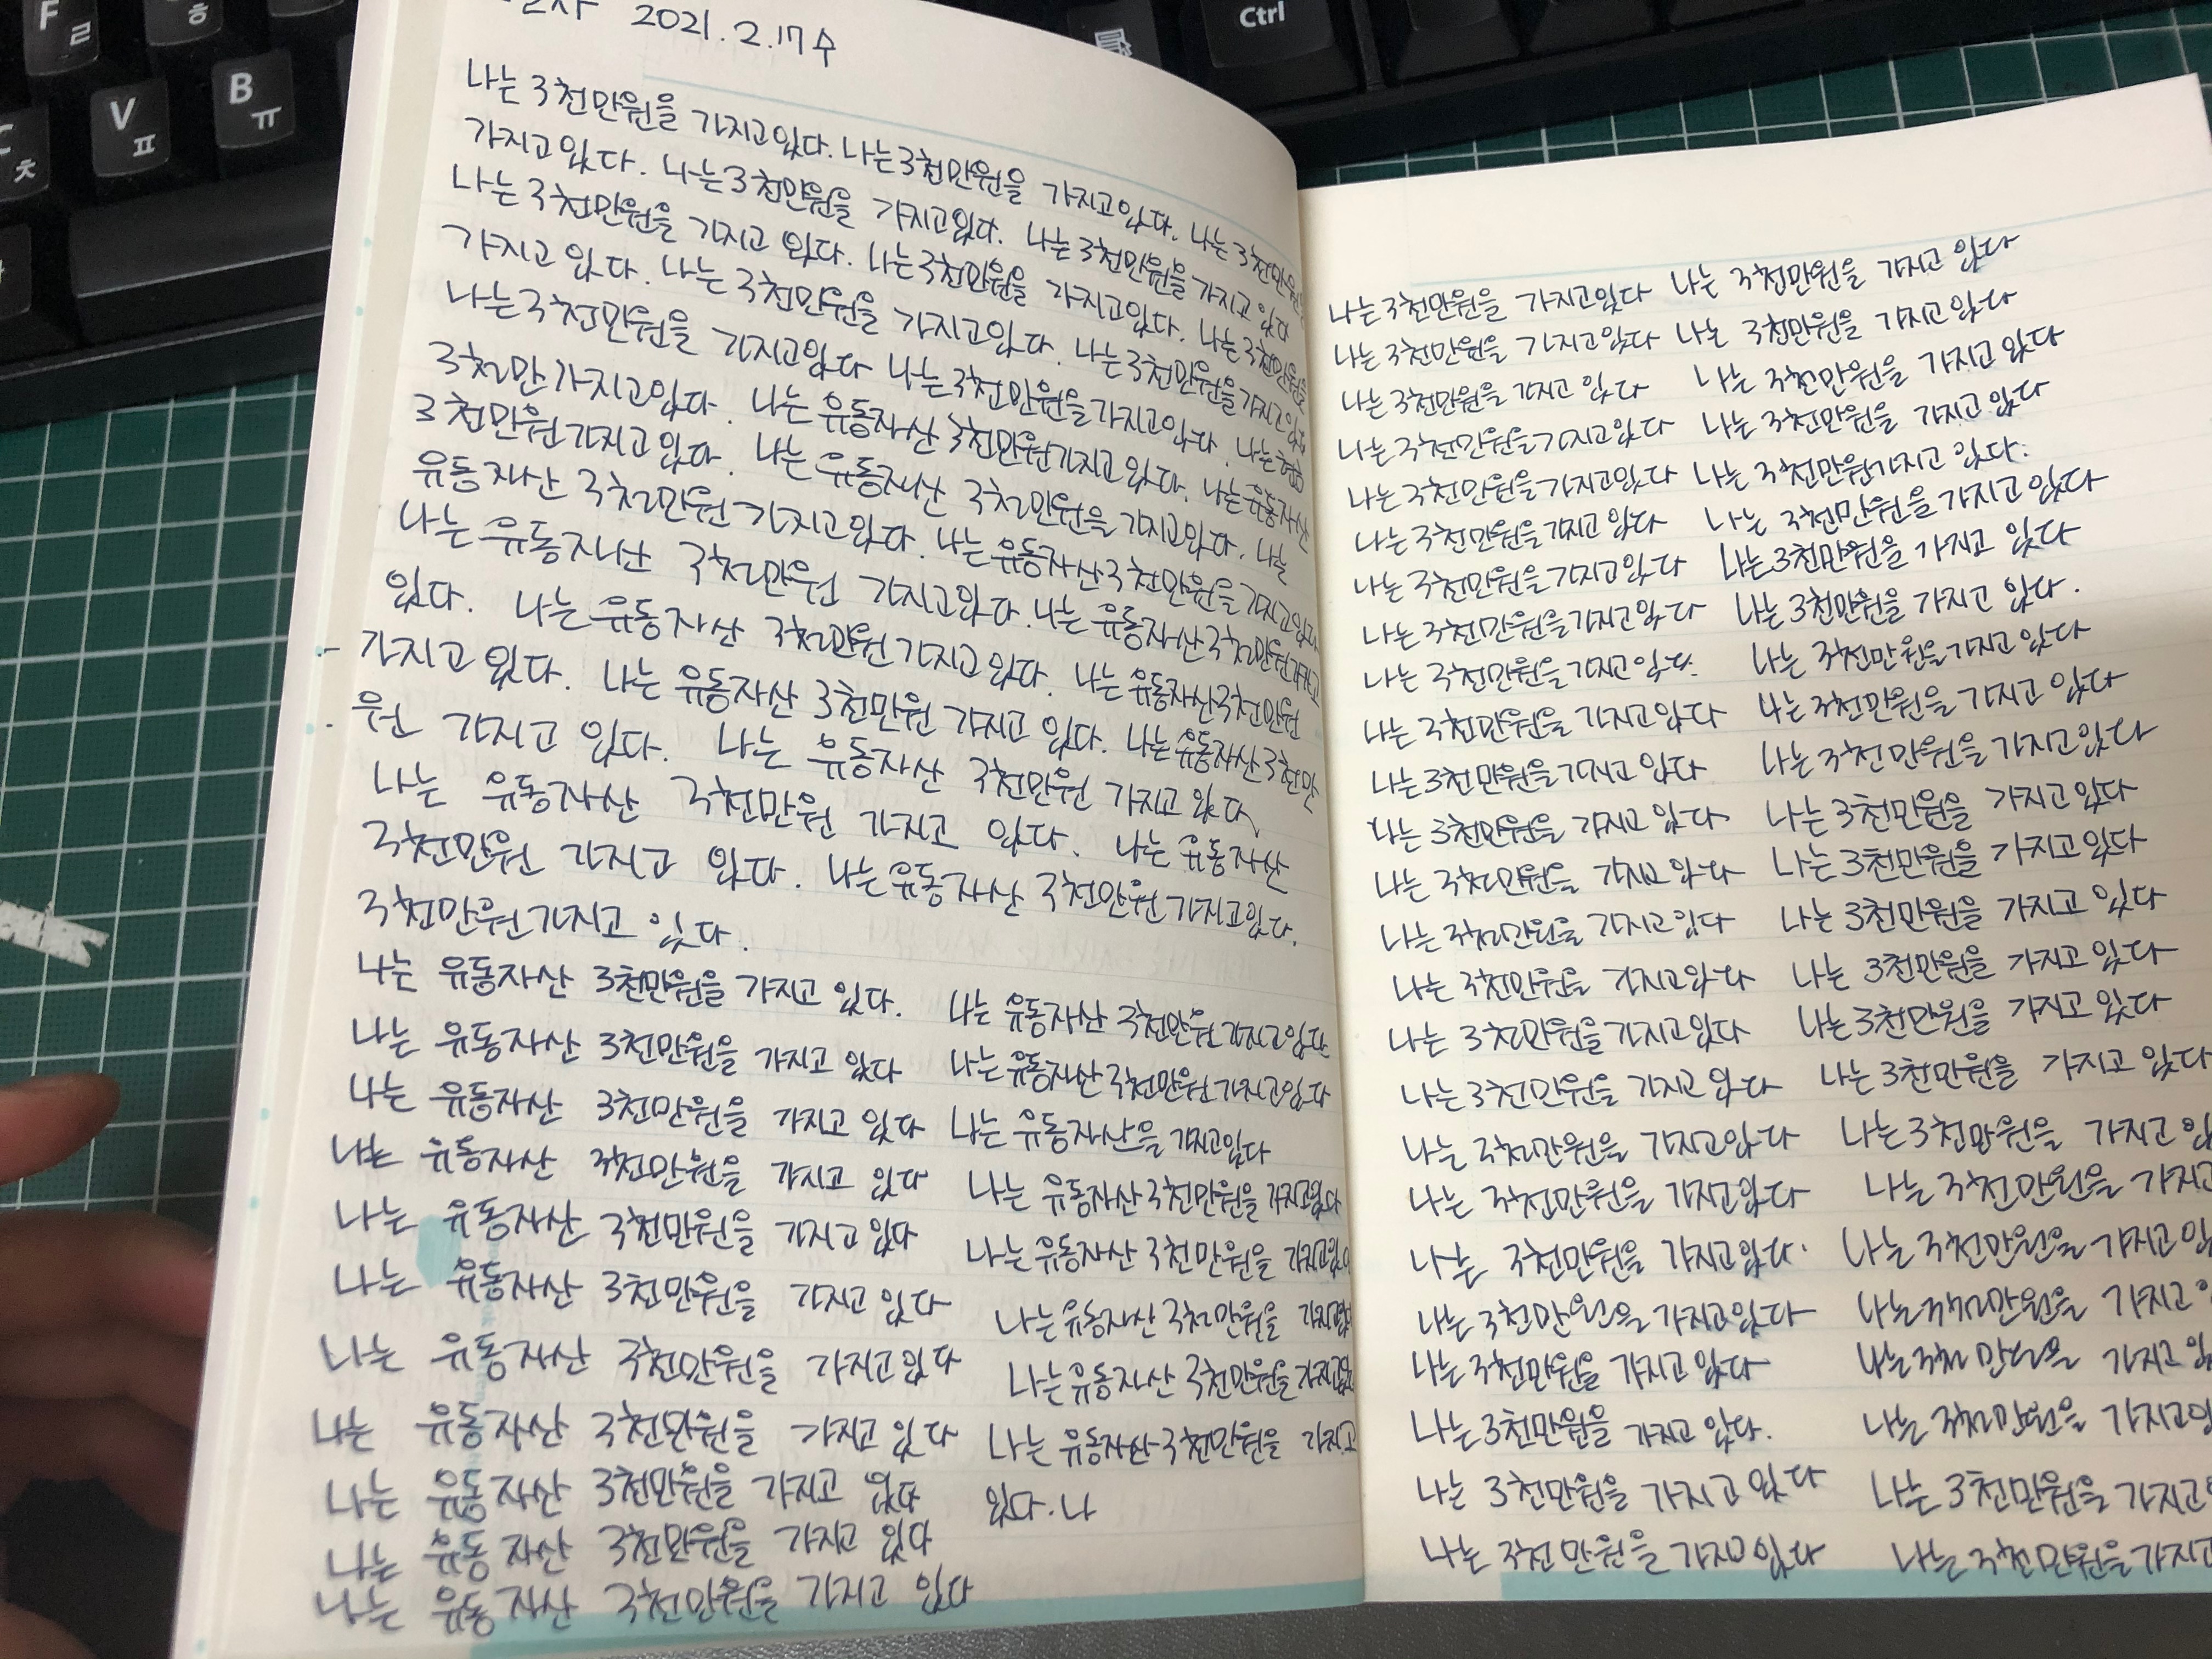 F ㄹ
ㅎ
Ctrl
C ㅊ
V ㅍ
B ㅠ
2021.2.17 수
나는 3천만원을 가지고있다. 나는 3천만원을 가지고있다. 나는 3천만원을
가지고있다. 나는 3천만원을 가지고있다. 나는 3천만원을 가지고 있다
나는 3천만원을 가지고 있다. 나는 3천만원을 가지고있다. 나는 3천만원을
가지고 있다. 나는 3천만원을 가지고있다. 나는 3천만원을 가지고있다
나는 3천만원을 가지고있다 나는 3천만원을 가지고있다. 나는 현금
3천만 가지고있다. 나는 유동자산 3천만원가지고있다. 나는 유동자산
3천만원가지고있다. 나는 유동자산 3천만원을 가지고있다. 나는
유동자산 3천만원 가지고있다. 나는 유동자산 3천만원을 가지고있다
나는 유동자산 3천만원 가지고있다. 나는 유동자산 3천만원가지고
있다. 나는 유동자산 3천만원 가지고있다. 나는 유동자산 3천만원
가지고 있다. 나는 유동자산 3천만원 가지고 있다. 나는 유동자산 3천만
원 가지고 있다. 나는 유동자산 3천만원 가지고 있다
나는 유동자산 3천만원 가지고 있다. 나는 유동자산
3천만원 가지고 있다. 나는 유동자산 3천만원 가지고있다.
3천만원가지고 있다.
나는 유동자산 3천만원을 가지고 있다. 나는 유동자산 3천만원 가지고있다
나는 유동자산 3천만원을 가지고 있다 나는 유동자산 3천만원 가지고있다
나는 유동자산 3천만원을 가지고 있다 나는 유동자산을 가지고있다
나는 유동자산 3천만원을 가지고 있다 나는 유동자산 3천만원을 가지고있다
나는 유동자산 3천만원을 가지고 있다 나는 유동자산 3천만원을 가지고있다
나는 유동자산 3천만원을 가지고 있다 나는 유동자산 3천만원을 가지고있
나는 유동자산 3천만원을 가지고있다 나는 유동자산 3천만원을 가지고있
나는 유동자산 3천만원을 가지고 있다 나는 유동자산 3천만원을 가지고
나는 유동자산 3천만원을 가지고 있다 있다. 나
나는 유동자산 3천만원을 가지고 있다
나는 유동자산 3천만원을 가지고 있다
나는 3천만원을 가지고있다 나는 3천만원을 가지고 있다
나는 3천만원을 가지고있다 나는 3천만원을 가지고있다
나는 3천만원을 가지고 있다 나는 3천만원을 가지고 있다
나는 3천만원을 가지고있다 나는 3천만원을 가지고 있다
나는 3천만원을 가지고있다 나는 3천만원가지고 있다.
나는 3천만원을 가지고 있다 나는 3천만원을 가지고 있다
나는 3천만원을 가지고있다 나는 3천만원을 가지고 있다
나는 3천만원을 가지고있다 나는 3천만원을 가지고 있다.
나는 3천만원을 가지고있다. 나는 3천만원을 가지고 있다
나는 3천만원을 가지고있다 나는 3천만원을 가지고 있다
나는 3천만원을 가지고 있다 나는 3천만원을 가지고있다
나는 3천만원을 가지고 있다 나는 3천만원을 가지고 있다
나는 3천만원을 가지고 있다 나는 3천만원을 가지고있다
나는 3천만원을 가지고있다 나는 3천만원을 가지고 있다
나는 3천만원을 가지고있다 나는 3천만원을 가지고 있다
나는 3천만원을 가지고있다 나는 3천만원을 가지고 있다
나는 3천만원을 가지고 있다 나는 3천만원을 가지고 있다
나는 3천만원을 가지고있다 나는 3천만원을 가지고 있
나는 3천만원을 가지고있다 나는 3천만원을 가지고
나는 3천만원을 가지고있다. 나는 3천만원을 가지고있
나는 3천만원을 가지고있다 나는 3천만원을 가지고
나는 3천만원을 가지고 있다 나는 3천만원을 가지고 있
나는 3천만원을 가지고 있다. 나는 3천만원을 가지고있
나는 3천만원을 가지고 있다 나는 3천만원을 가지고
나는 3천만원을 가지고 있다 나는 3천만원을 가지고